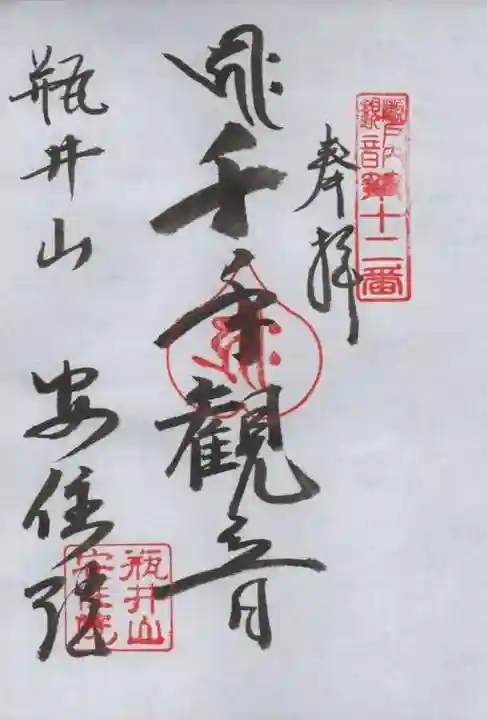 瀬戸内観音霊場
第十二番
奉拝
𑖮𑖿𑖨𑖱𑖾 千手観音
瓶井山 安住院
瓶井山
安住院